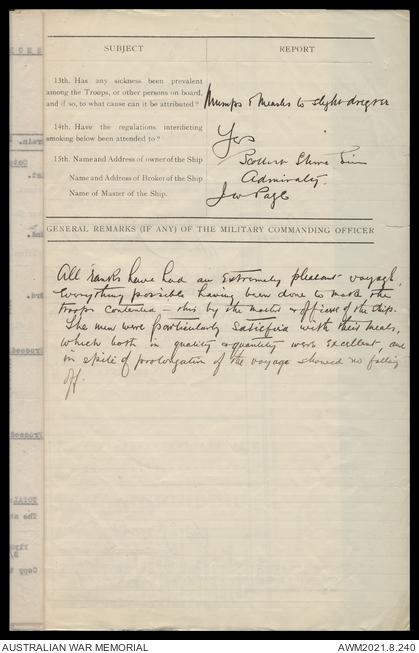 SUBJECT
REPORT
13th. Has any sickness been prevalent
among the Troops, or other persons on board,
and if so, to what cause can it be attributed?
Mumps & Measles to slight degree
14th. Have the regulations interdicting
smoking below been attended to?
Yes
15th. Name and Address of owner of the Ship
Name and Address of Broker of the Ship
Admiralty.
Name of Master of the Ship.
J W Page
GENERAL REMARKS (IF ANY) OF THE MILITARY COMMANDING OFFICER
All ranks have had an extremely pleasant voyage,
everything possible having been done to make the
troops contented – this by the master & officers of the ship.
The men were particularly satisfied with their meals,
which both in quality & quantity were excellent, and
in spite of prolongation of the voyage showed no falling
off.
AUSTRALIAN WAR MEMORIAL
AWM2021.8.246